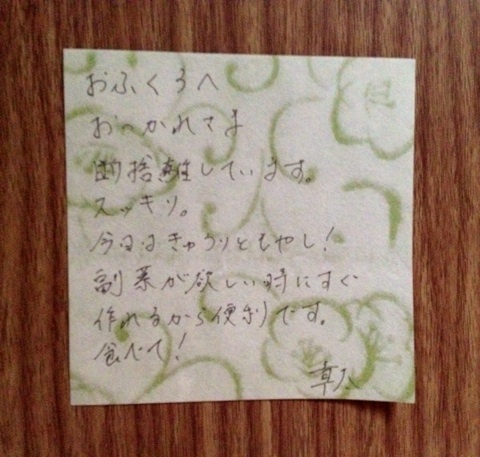 おふくろへ
おつかれさま
断捨離しています。
スッキリ。
今日はきゅうりともやし！
副菜が欲しい時にすぐ
作れるから便利です。
食べて！